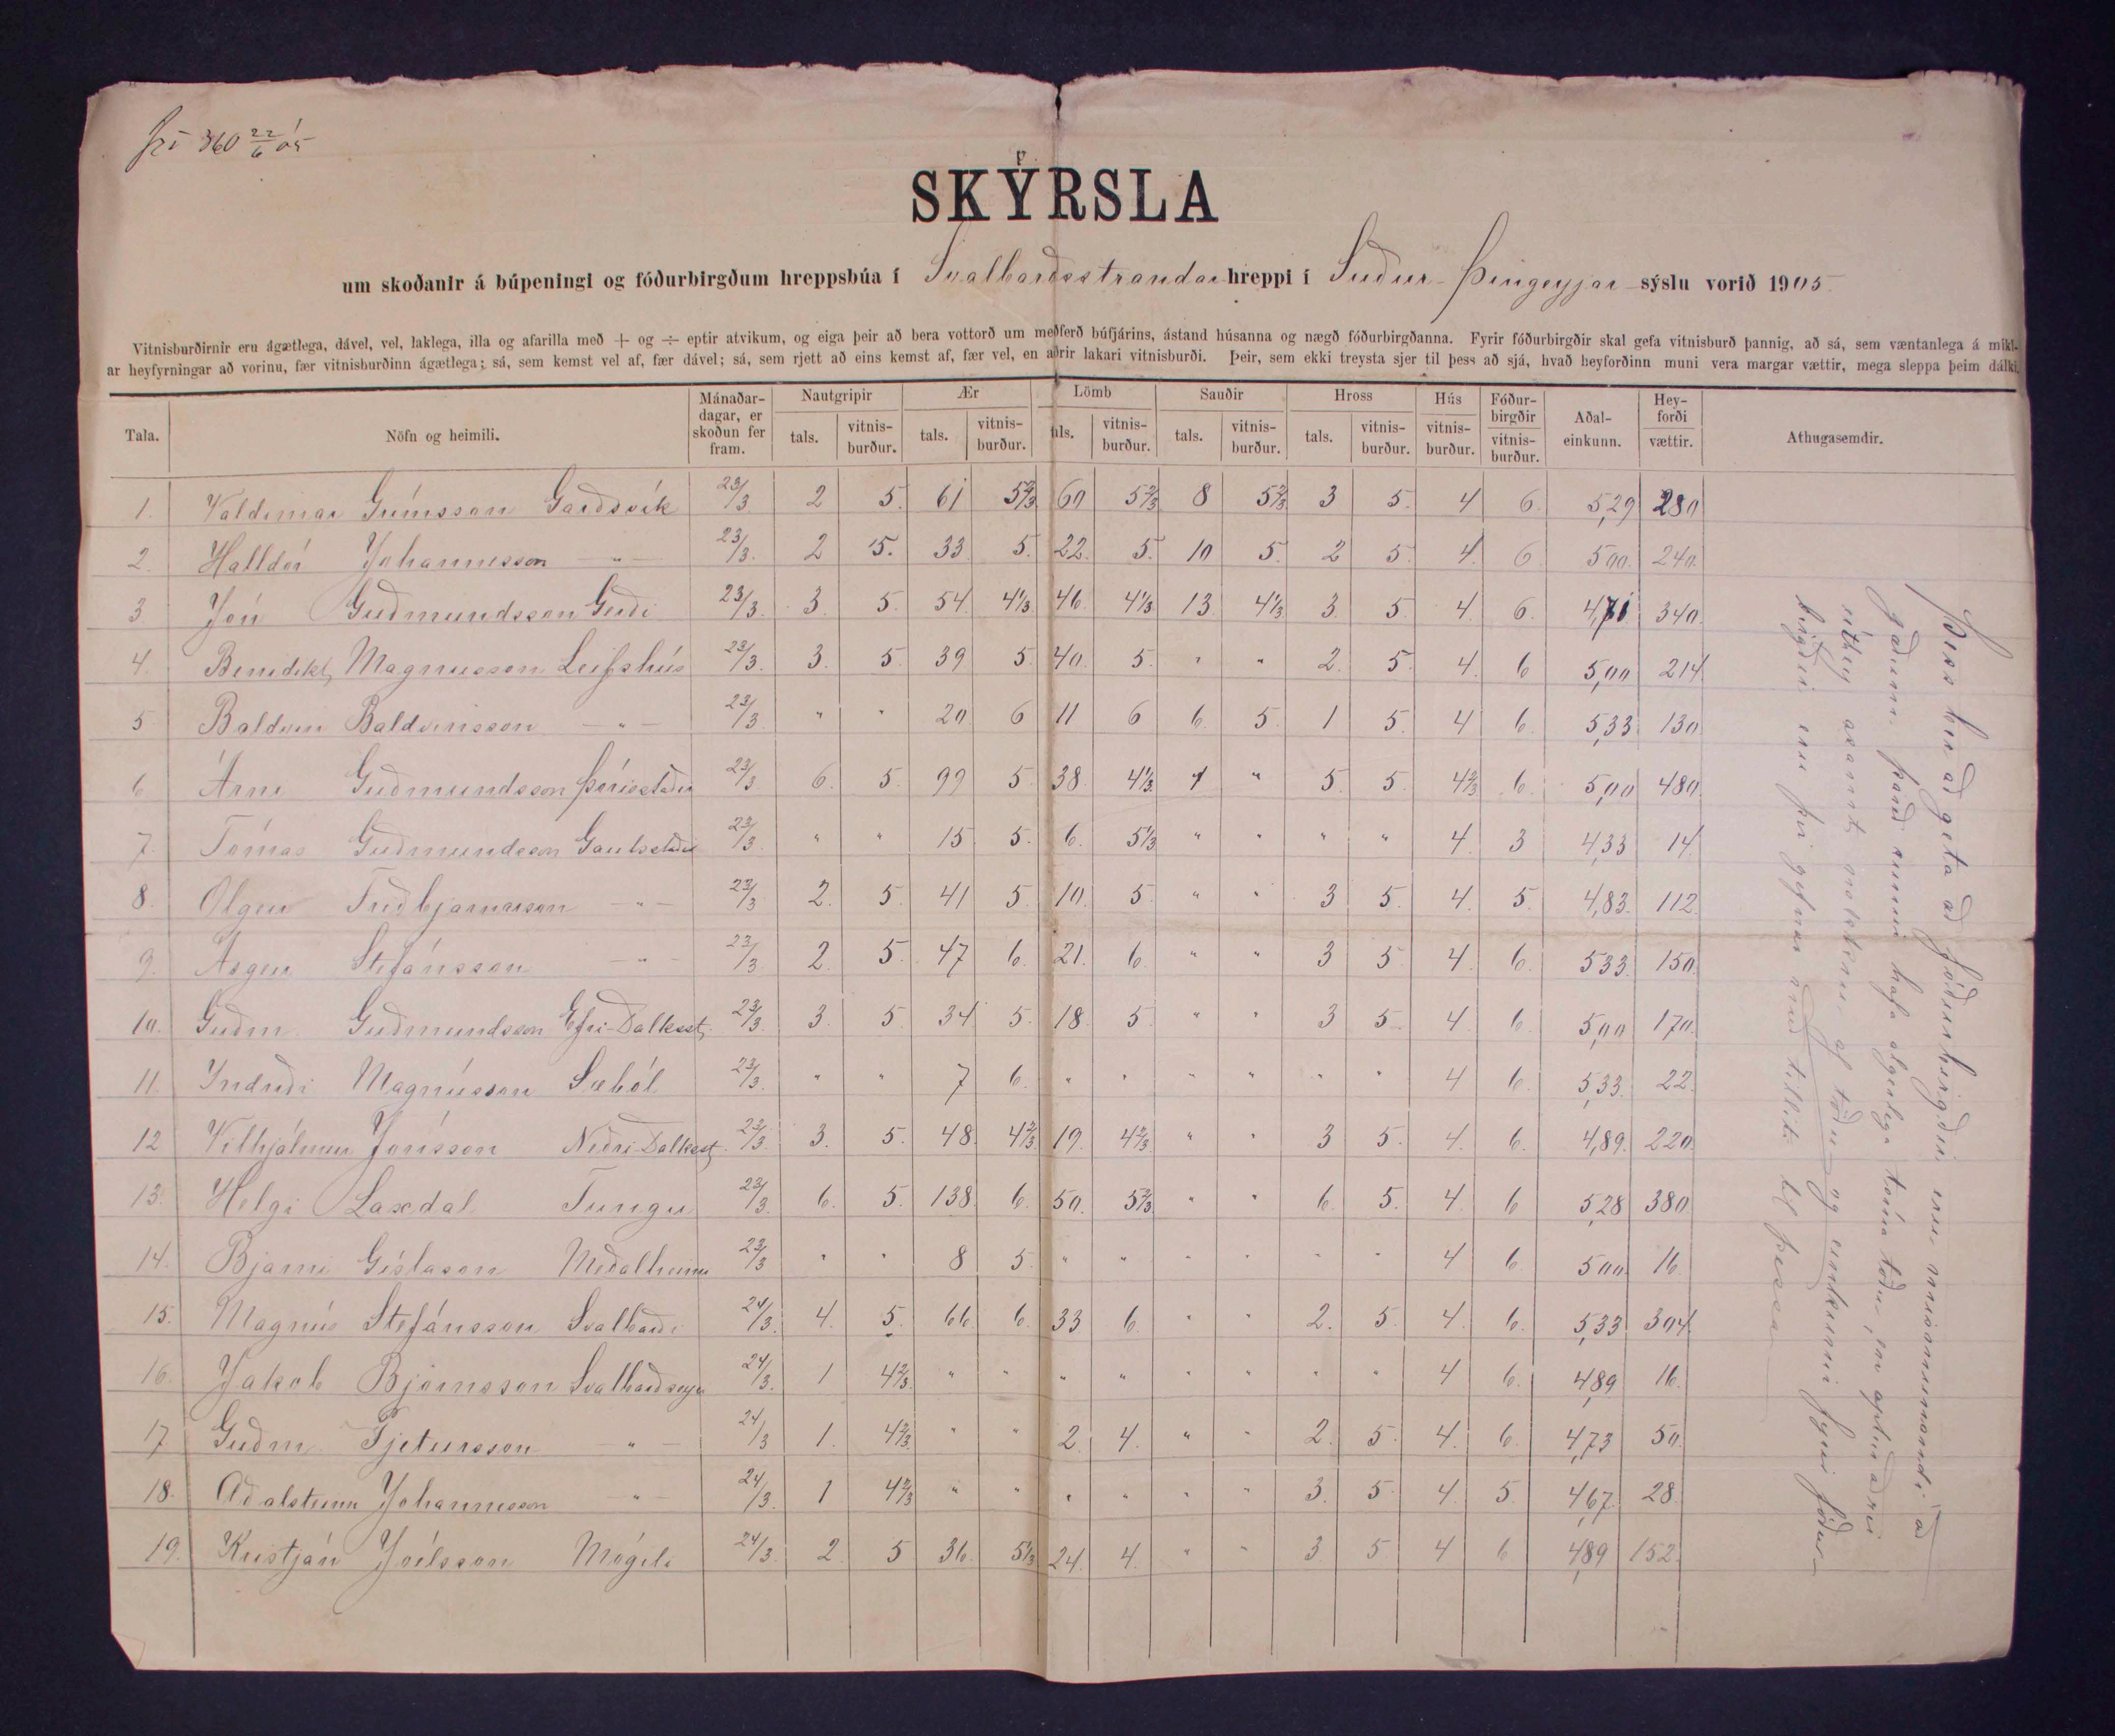 360 22/6 05
SKÝRSLA
um skoðanir á búpeningi og fóðurbirgðum hreppsbúa í Svalbarðsstrandar hreppi í Suður-Þingeyjar sýslu vorið 1905
Vitnisburðirnir eru ágætlega, dável, vel, laklega, illa og afarilla með + og ÷ eptir atvikum, og eiga þeir að bera vottorð um meðferð búfjárins, ástand húsanna og nægð fóðurbirgðanna. Fyrir fóðurbirgðir skal gefa vitnisburð þannig, að sá, sem væntanlega á mikl-
ar heyfyrningar að vorinu, fær vitnisburðinn ágætlega; sá, sem kemst vel af, fær dável; sá, sem rjett að eins kemst af, fær vel, en aðrir lakari vitnisburði. Þeir, sem ekki treysta sjer til þess að sjá, hvað heyforðinn muni vera margar vættir, mega sleppa þeim dálki.
Tala. Nöfn og heimili. Mánaðar-dagar, er skoðun fer fram. Nautgripir Ær Lömb Sauðir Hross Hús Fóður-birgðir Aðal-einkunn. Hey-forði Athugasemdir.
tals. vitnis-burður. tals. vitnis-burður. tals. vitnis-burður. tals. vitnis-burður. tals. vitnis-burður. vitnis-burður. vitnis-burður. vættir.
1. Valdimar Grímsson Garðsvík 23/3 2 5. 61 5 2/3 60 5 2/3 8 5 2/3 3 5. 4 6. 5,29 280
2. Halldór Jóhannesson -"- 23/3. 2 5. 33 5. 22. 5. 10 5. 2 5 4. 6 5,00. 240.
3. Jón Guðmundsson Gerði 23/3. 3. 5. 54. 4 1/3 46. 4 1/3 13. 4 1/3 3. 5. 4. 6. 4,71 340.
4. Benidikt Magnusson Leifshús 23/3. 3. 5 39 5 40. 5. " " 2. 5. 4. 6 5,00 214.
5 Baldvin Baldvinsson -"- 23/3. " " 20. 6 11 6 6. 5. 1 5. 4 6. 5,33 130
6 Árni Guðmundsson Þórisstaðir 23/3 6. 5. 99 5. 38. 4 1/3. 1 " 5. 5. 4 2/3 6. 5,00 480
7. Tómas Guðmundsson Gautsstaðir 23/3. " " 15 5. 6. 5 1/3 " " " " 4. 3 4,33 14.
8. Olgeir Friðbjarnarson -"- 23/3 2. 5. 41 5 10. 5. " " 3 5. 4. 5. 4,83. 112
9. Asgeir Stefánsson -"- 23/3. 2. 5. 47 6. 21. 6. " " 3 5 4. 6. 5,33. 150.
10. Guðm. Guðmundsson Efri-Dalksst. 23/3. 3. 5. 34 5. 18. 5. " " 3 5. 4 6. 5,00 170.
11. Indriði Magnússon Sæból 23/3. " " 7 6. " " " " " " 4 6. 5,33. 22.
12 Vilhjálmur Jónsson Neðri-Dalksst. 23/3. 3. 5. 48. 4 2/3. 19. 4 2/3. " " 3 5. 4. 6. 4,89. 220.
13. Helgi Laxdal Tungu 23/3. 6. 5. 138. 6. 50. 5 2/3 " " 6. 5. 4 6 5,28 380
14. Bjarni Gíslason Meðalheimi 23/3 " " 8 5. " " " " " " 4 6 5,00 16.
15. Magnús Stefánsson Svalbarði 24/3. 4. 5. 66. 6. 33 6. " " 2. 5. 4. 6. 5,33 304.
16. Jakob Björnsson Svalbarðseyri 24/3. 1 4 2/3. " " " " " " " " 4 6. 4,89 16.
17 Guðm. Pjetursson -"- 24/3 1. 4 2/3. " " 2. 4. " " 2. 5. 4. 6. 4,73 50.
18. Aðalsteinn Johannesson -"- 24/3. 1 4 2/3 " " " " " " 3. 5. 4. 5. 4,67. 28.
19. Kristján Jóelsson Mógili 24/3. 2. 5 36. 5 1/3 24. 4. " " 3. 5 4 6 4,89 152.
Þess ber að geta að fóðurbirgðir eru mismunandi að
gæðum, þareð sumir hafa algerlega tóma töðu, en aptur aðrir
úthey ásamt nokkru af töðu og einkunnir fyrir fóður-
birgðir eru því gefnar með tilliti til þessa